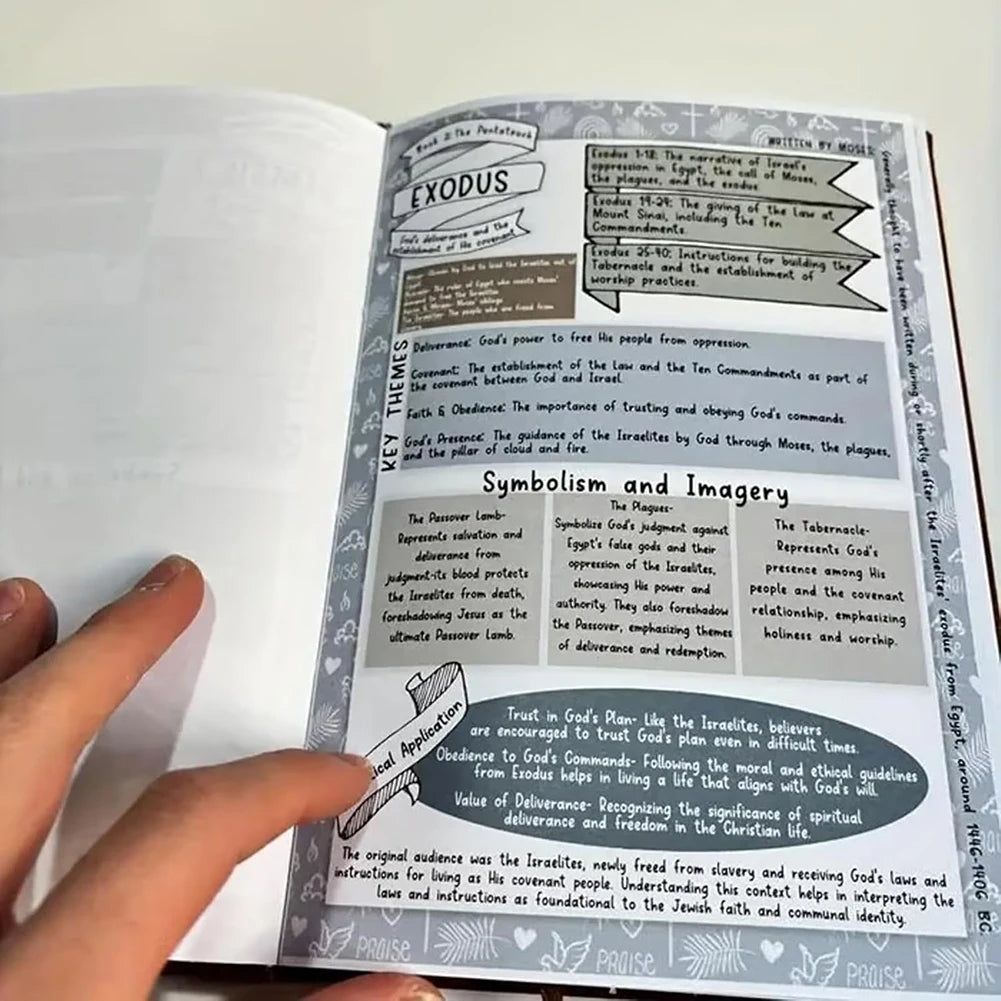 Book 2: The Pentateuch
EXODUS
God's deliverance and the
establishment of His covenant
WRITTEN BY MOSES:
Generally thought to have been written during or shortly after the Israelites' exodus from Egypt, around 1446-1406 BC
Exodus 1-18: The narrative of Israel's
oppression in Egypt, the call of Moses,
the plagues, and the exodus
Exodus 19-24: The giving of the Law at
Mount Sinai, including the Ten
Commandments.
Exodus 25-40: Instructions for building the
Tabernacle and the establishment of
worship practices.
Chosen by God to lead the Israelites out of
Egypt
The ruler of Egypt who resists Moses'
demand to free the Israelites
& Miriam- Moses' siblings
The Israelites: The people who are freed from
KEY THEMES
Deliverance: God's power to free His people from oppression.
Covenant: The establishment of the Law and the Ten Commandments as part of
the covenant between God and Israel.
Faith & Obedience: The importance of trusting and obeying God's commands.
God's Presence: The guidance of the Israelites by God through Moses, the plagues,
and the pillar of cloud and fire.
Symbolism and Imagery
The Passover Lamb-
Represents salvation and
deliverance from
judgment-its blood protects
the Israelites from death,
foreshadowing Jesus as the
ultimate Passover Lamb.
The Plagues-
Symbolize God's judgment against
Egypt's false gods and their
oppression of the Israelites,
showcasing His power and
authority. They also foreshadow
the Passover, emphasizing themes
of deliverance and redemption.
The Tabernacle-
Represents God's
presence among His
people and the covenant
relationship, emphasizing
holiness and worship.
ical Application
Trust in God's Plan- Like the Israelites, believers
are encouraged to trust God's plan even in difficult times.
Obedience to God's Commands- Following the moral and ethical guidelines
from Exodus helps in living a life that aligns with God's will.
Value of Deliverance- Recognizing the significance of spiritual
deliverance and freedom in the Christian life.
The original audience was the Israelites, newly freed from slavery and receiving God's laws and
instructions for living as His covenant people. Understanding this context helps in interpreting the
laws and instructions as foundational to the Jewish faith and communal identity.
PRAISE
PRAISE
PRAISE